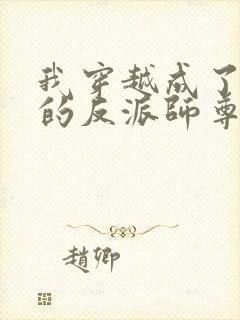 我穿越成了
的反派師尊
趙卿